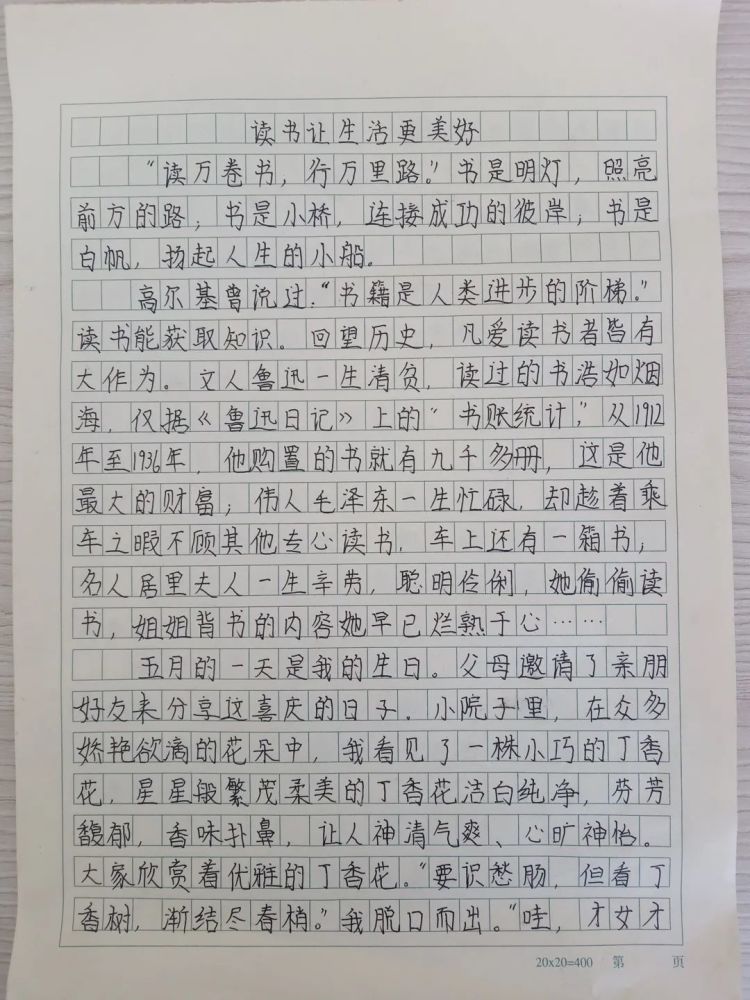 读书让生活更美好
“读万卷书，行万里路。”书是明灯，照亮
前方的路；书是小桥，连接成功的彼岸；书是
白帆，扬起人生的小船。
高尔基曾说过：“书籍是人类进步的阶梯。”
读书能获取知识。回望历史，凡爱读书者皆有
大作为。文人鲁迅一生清贫，读过的书浩如烟
海，仅据《鲁迅日记》上的“书账统计”，从1912
年至1936年，他购置的书就有九千多册，这是他
最大的财富；伟人毛泽东一生忙碌，却趁着乘
车之暇不顾其他专心读书，车上还有一箱书；
名人居里夫人一生辛劳，聪明伶俐，她偷偷读
书，姐姐背书的内容她早已烂熟于心……
五月的一天是我的生日。父母邀请了亲朋
好友来分享这喜庆的日子。小院子里，在众多
娇艳欲滴的花朵中，我看见了一株小巧的丁香
花，星星般繁茂柔美的丁香花洁白纯净，芬芳
馥郁，香味扑鼻，让人神清气爽、心旷神怡。
大家欣赏着优雅的丁香花。“要识愁肠，但看丁
香树，渐结尽春梢。”我脱口而出。“哇，才女才
20x20=400 第 页